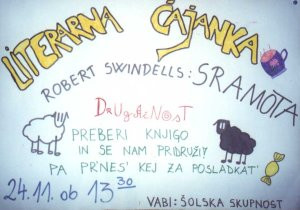 LITERARNA ČAJANKA
ROBERT SWINDELLS: SRAMOTA
DrUgAčNOST
PREBERI KNJIGO
IN SE NAM PRIDRUŽI
PA PR'NES' KEJ ZA POSLADKAT'
24.11. ob 13 30
VABI: ŠOLSKA SKUPNOST